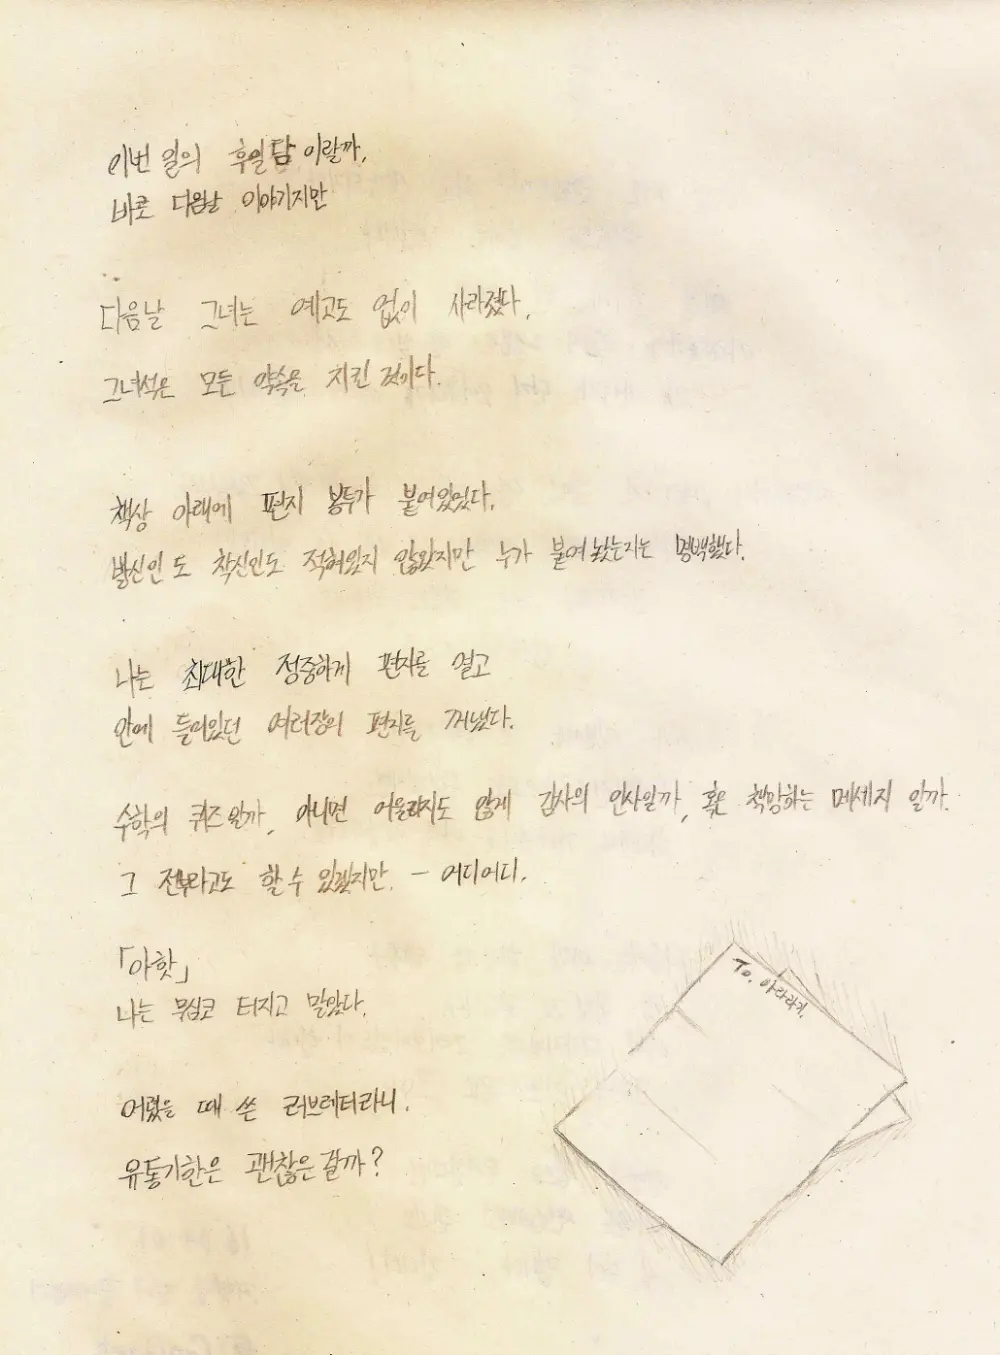 이번 일의 후일담 이랄까,
바로 다음날 이야기지만
다음날 그녀는 예고도 없이 사라졌다.
그녀석은 모든 약속을 지킨 것이다.
책상 아래에 편지 봉투가 붙여있었다.
발신인도 착신인도 적혀있지 않았지만 누가 붙여놨는지는 명백했다.
나는 최대한 정중하게 편지를 열고
안에 들어있던 여러장의 편지를 꺼냈다.
수학의 퀴즈일까, 아니면 어울리지도 않게 감사의 인사일까, 혹은 책망하는 메세지 일까.
그 전부라고도 할 수 있겠지만. — 어디어디.
「아핫」
나는 무심코 터지고 말았다.
어렸을 때 쓴 러브레터라니.
유통기한은 괜찮은걸까?
To. 아라라기.